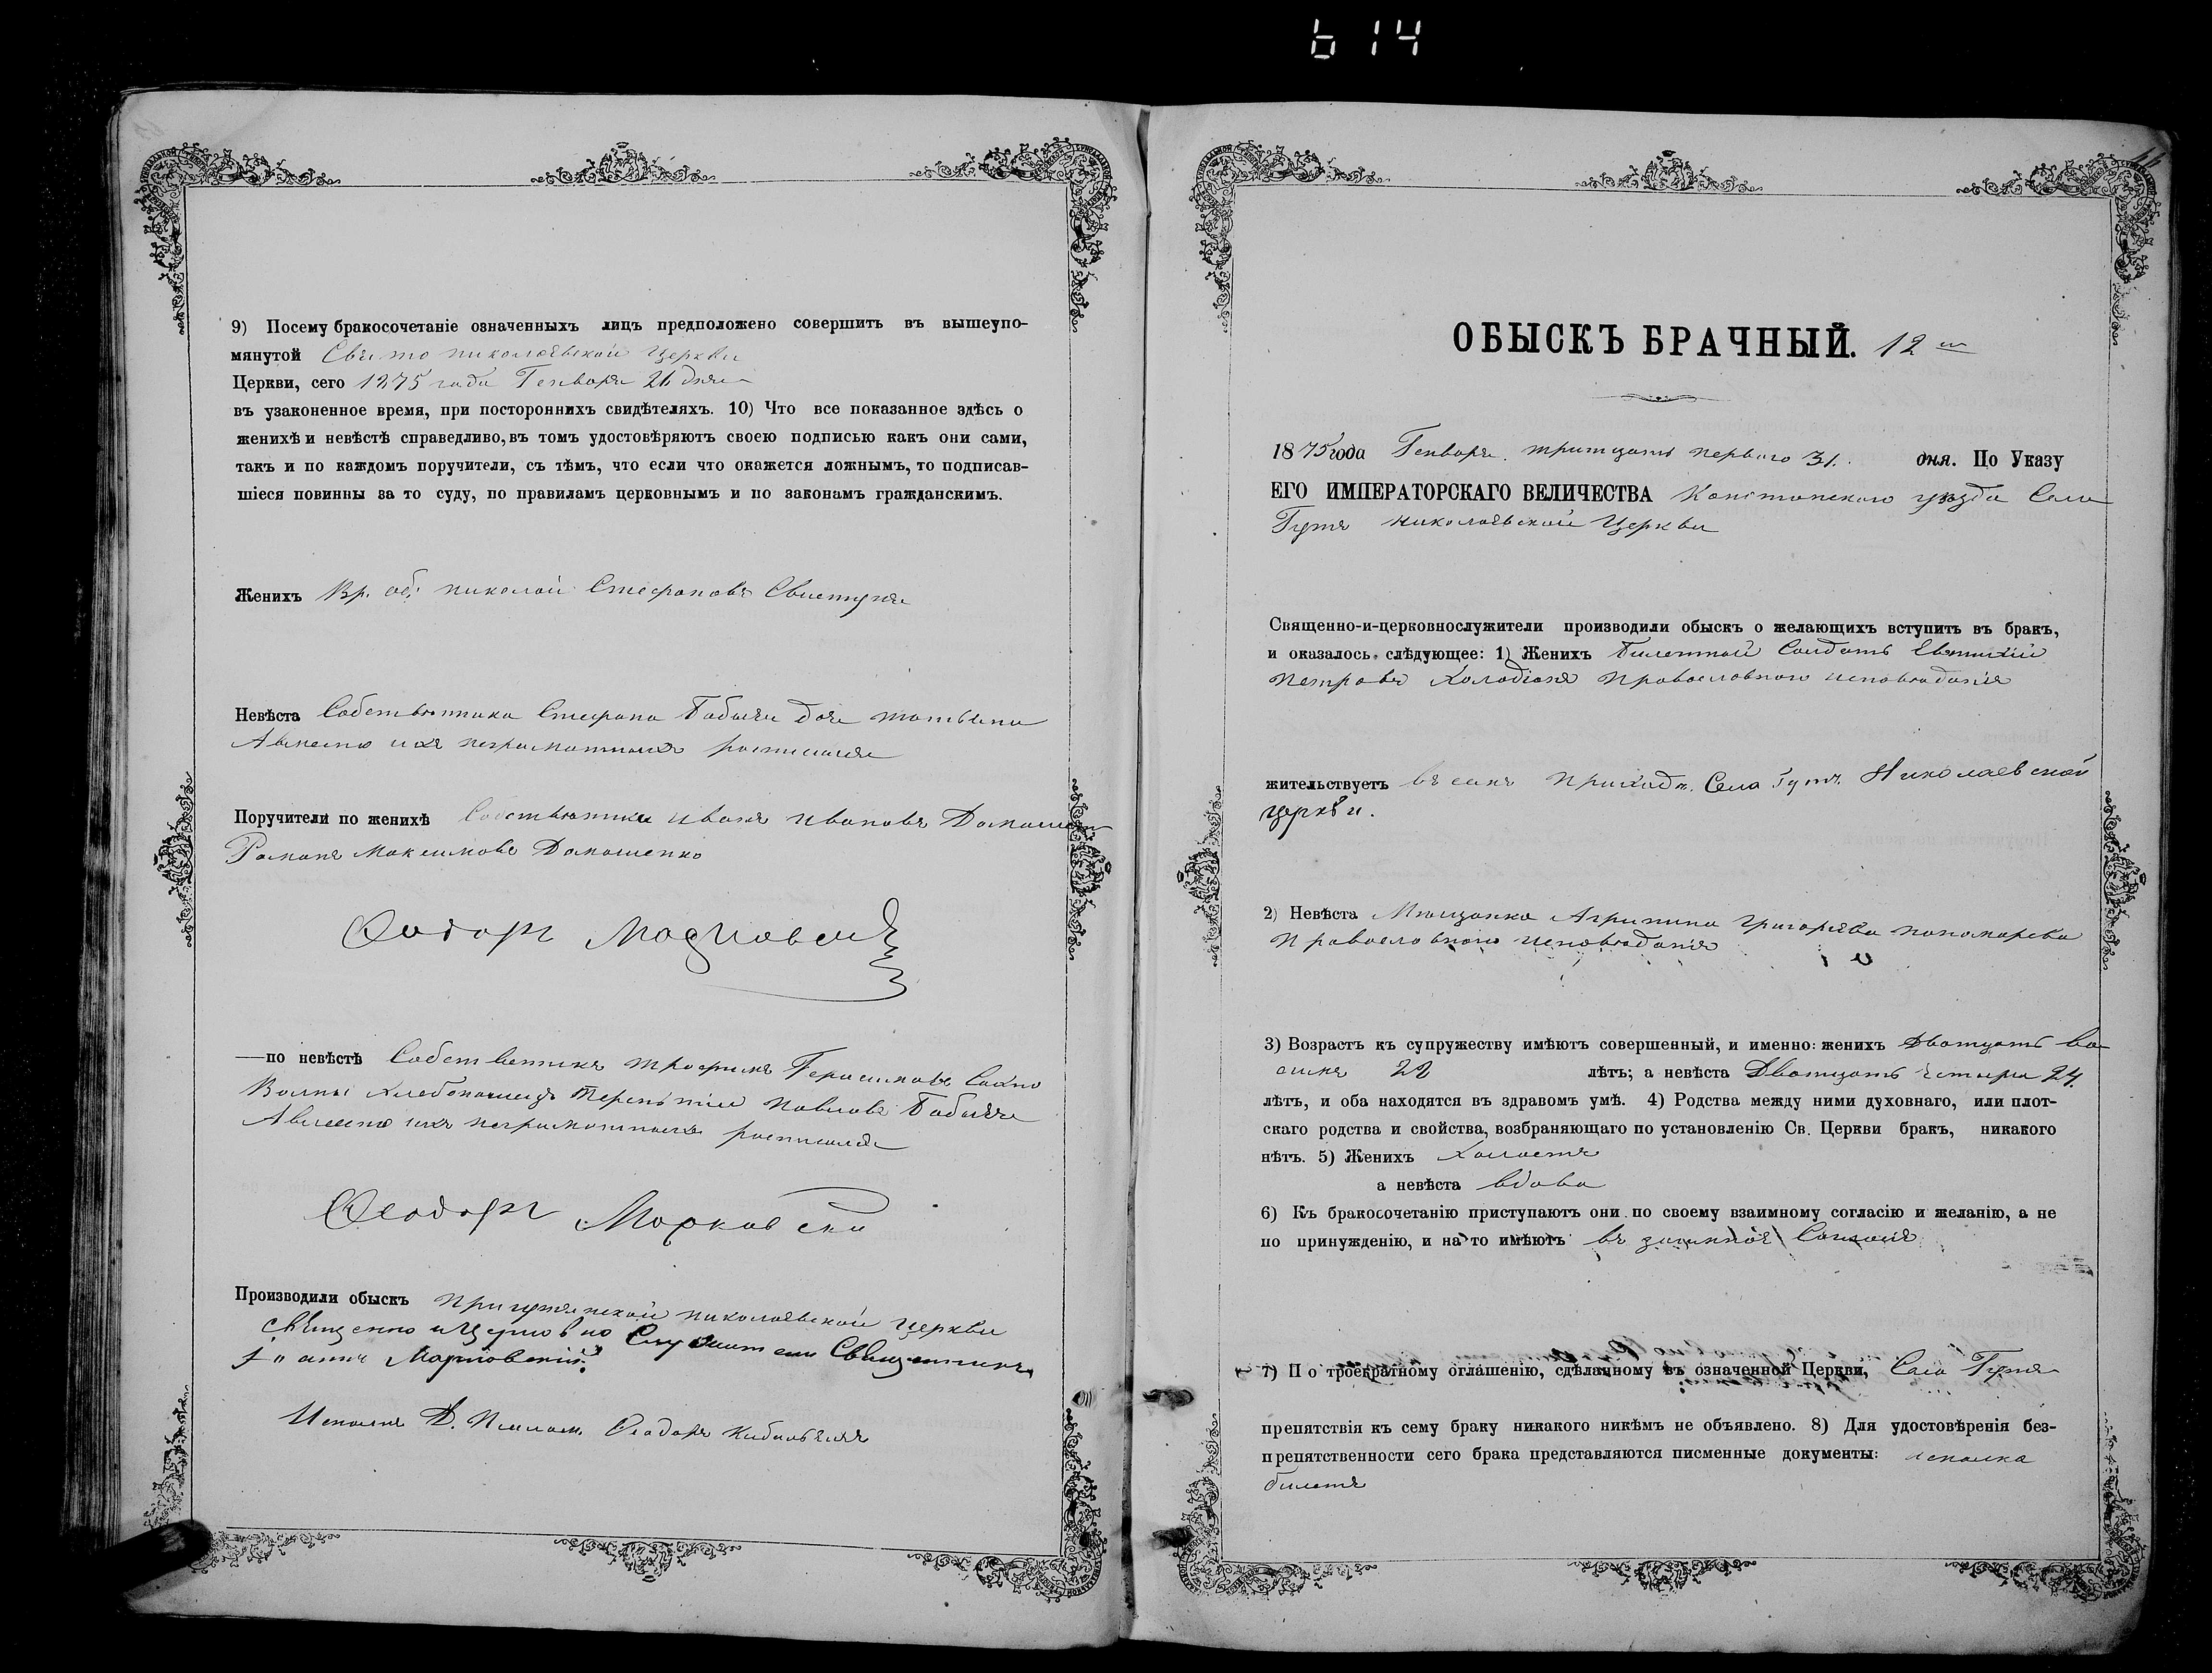 614
9) Посему бракосочетаніе означенныхъ лицъ предположено совершить въ вышеупо-
мянутой Свято николаевской церкви
Церкви, сего 1875 года Генваря 26 дня
въ узаконенное время, при постороннихъ свидѣтеляхъ. 10) Что все показанное здѣсь о
женихѣ и невѣстѣ справедливо, въ томъ удостовѣряютъ своею подписью какъ они сами,
такъ и по каждомъ поручители, съ тѣмъ, что если что окажется ложнымъ, то подписав-
шіеся повинны за то суду, по правиламъ церковнымъ и по законамъ гражданскимъ.
Женихъ Вр. об: николай Стефановъ Свистунъ
Невѣста Собствѣнника Стефана Бабыча дочь татьяна
Авместо ихъ неграмотныхъ росписался
Поручители по женихѣ Собствѣнники иванъ ивановъ
Романъ максимовъ Домашенко
Феодоръ
—по невѣстѣ Собственикъ трофимъ Герасимовъ
павловъ Бабычъ
Авместо ихъ неграмотныхъ росписался
Феодоръ
Производили обыскъ николаевской церкви
Священно и Церковно Служители Священникъ
Феодоръ
16
ОБЫСКЪ БРАЧНЫЙ. 12
1875 года Генваря тритцать первого 31. дня. По Указу
ЕГО ИМПЕРАТОРСКАГО ВЕЛИЧЕСТВА Конотопского уѣзда Села
Гутъ николаевской Церкви
Священно-и-церковнослужители производили обыскъ о желающихъ вступить въ бракъ,
и оказалось слѣдующее: 1) Женихъ билетной Солдатъ Евтихій
петровъ православного исповѣданія
жительствуетъ въ семъ приходѣ. Села Гутъ. Николаевской
церкви.
2) Невѣста Мѣщанка Агрипина григорьева пономарева
православного исповѣданія
3) Возрастъ къ супружеству имѣютъ совершенный, и именно: женихъ Двотцать во
семъ 28 лѣтъ; а невѣста Двотцать четыри 24.
лѣтъ, и оба находятся въ здравомъ умѣ. 4) Родства между ними духовнаго, или плот-
скаго родства и свойства, возбраняющаго по установленію Св. Церкви бракъ, никакого
нѣтъ. 5) Женихъ холостъ
а невѣста вдова
6) Къ бракосочетанію приступаютъ они по своему взаимному согласію и желанію, а не
по принужденію, и на то имѣютъ взаимное Согласіе
7) По троекратному оглашенію, сдѣланному въ означенной Церкви, Села Гутъ
препятствія къ сему браку никакого никѣмъ не объявлено. 8) Для удостовѣренія без-
препятственности сего брака представляются писменные документы:
билетъ